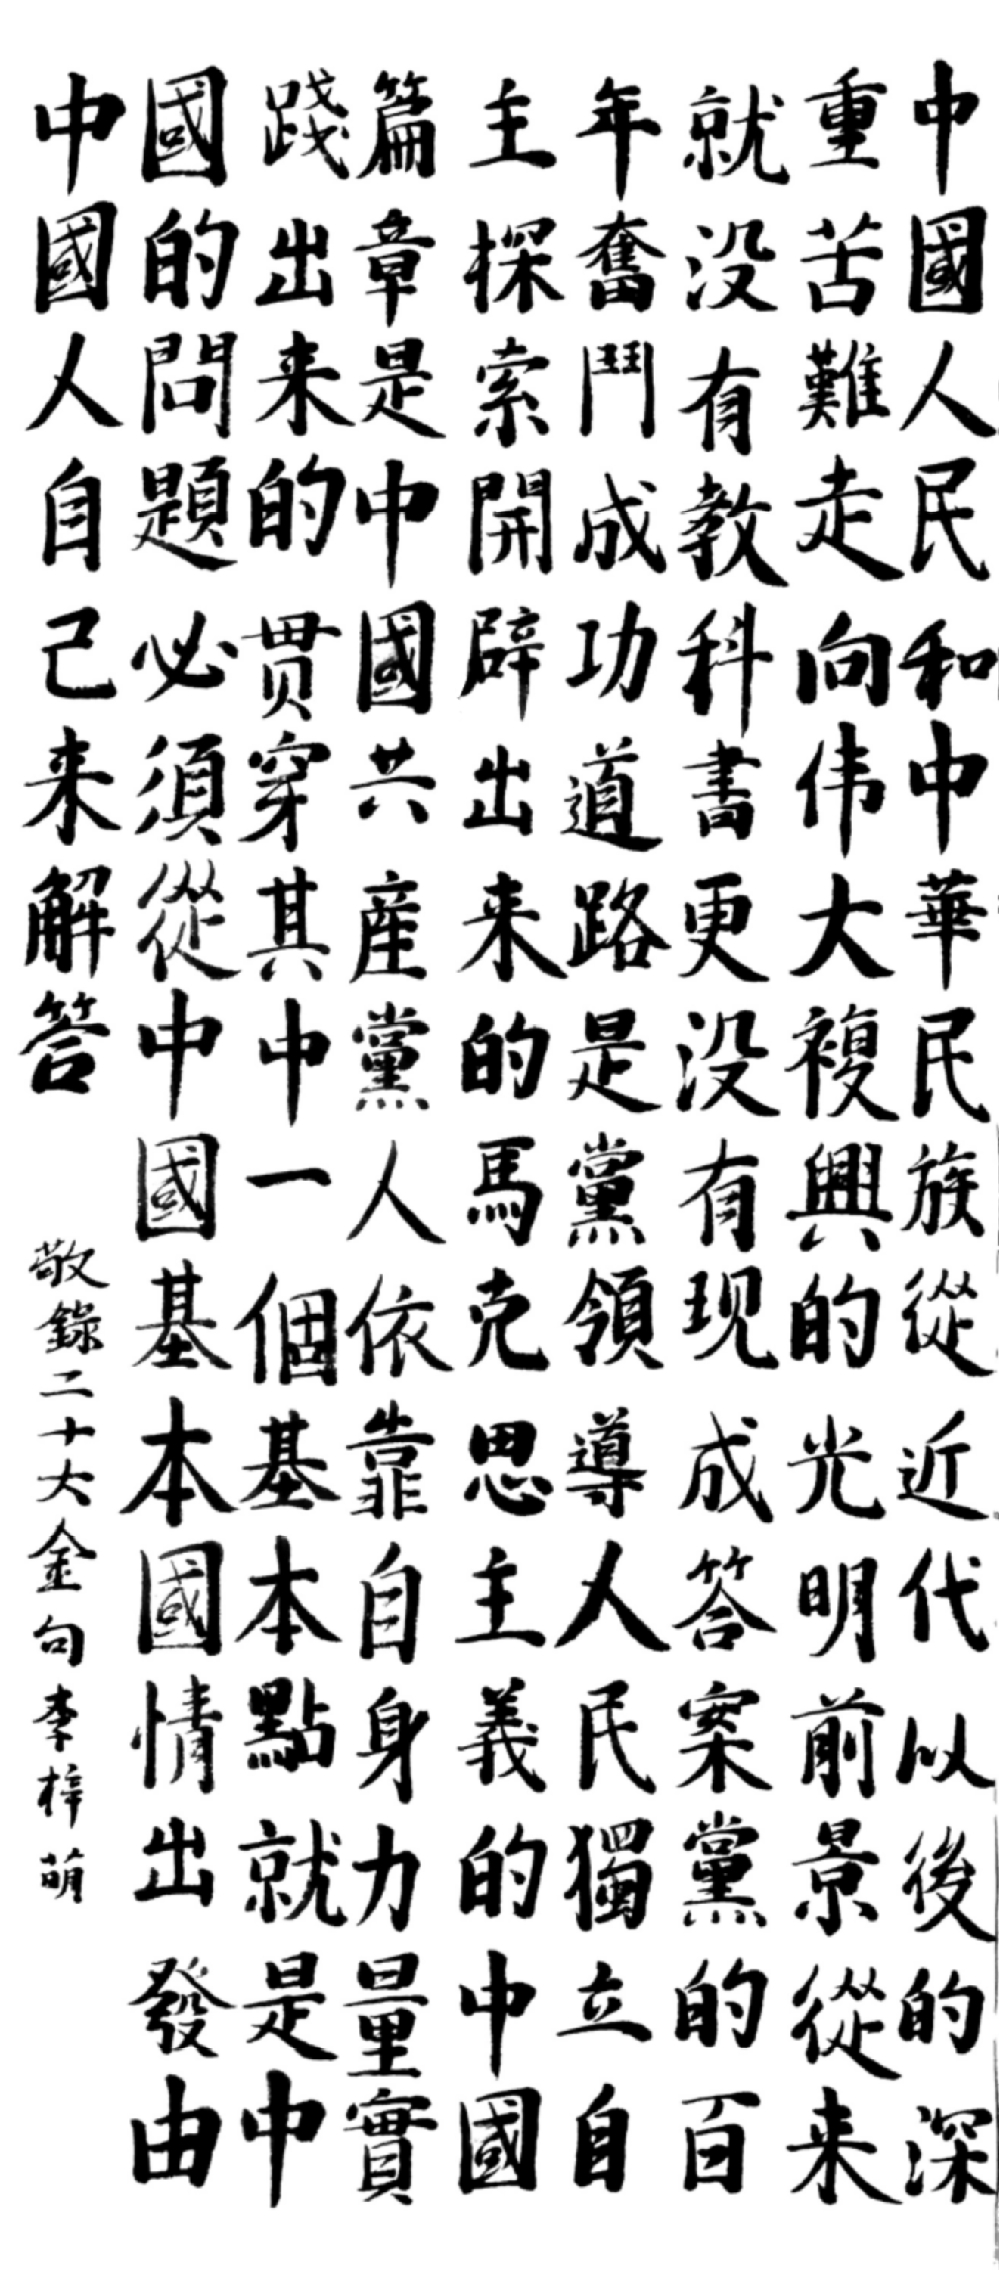 中國人民和中華民族從近代以後的深
重苦難走向伟大複興的光明前景從来
就没有教科書更没有现成答案黨的百
年奮鬥成功道路是黨領導人民獨立自
主探索開辟出来的馬克思主義的中國
篇章是中國共産黨人依靠自身力量實
踐出来的贯穿其中一個基本點就是中
國的問題必須從中國基本國情出發由
中國人自己来解答
敬錄二十大金句李梓萌